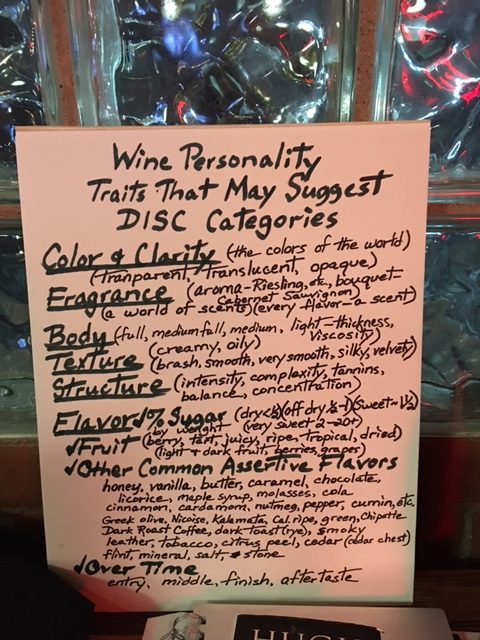 Wine Personality
Traits That May Suggest
DISC Categories
Color & Clarity (the colors of the world)
(tranparent, translucent, opaque,)
Fragrance (aroma-Riesling, etc., bouquet-
Cabernet Sauvignon)
(a world of scents) (every flavor-a scent)
Body (full, medium full, medium, light-thickness,
viscosity)
Texture (creamy, oily)
(brash, smooth, very smooth, silky, velvety)
Structure (intensity, complexity, tannins,
balance, concentration)
Flavor √% Sugar (dry<½)(off dry ½-1)(sweet-1½)
by weight (very sweet 2-20+)
√Fruit (berry, tart, juicy, ripe, tropical, dried)
(light & dark fruit, berries, grapes)
√Other Common Assertive Flavors
honey, vanilla, butter, caramel, chocolate,
licorice, maple syrup, molasses, cola
cinnamon, cardamom, nutmeg, pepper, cumin, etc.
Greek olive, Nicoise, Kalamata, Cal. ripe, green, Chipotle
Dark Roast Coffee, dark toast (rye), smoky
leather, tobacco, citrus peel, cedar (cedar chest)
flint, mineral, salt, & stone
√Over Time
entry, middle, finish, aftertaste